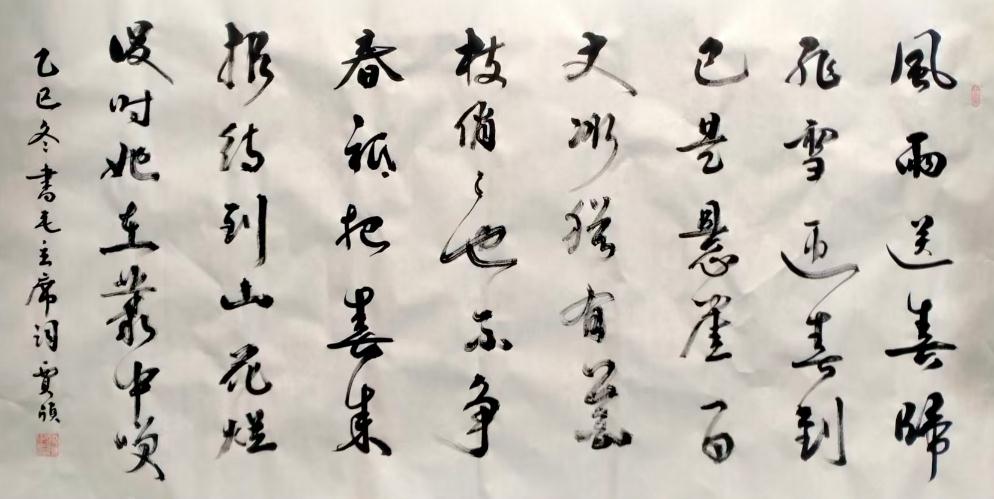 風雨送春歸
飛雪迎春到
已是懸崖百
丈冰猶有花
枝俏々也不争
春祇把春来
报待到山花爛
漫时她在叢中笑
乙巳冬書毛主席詞